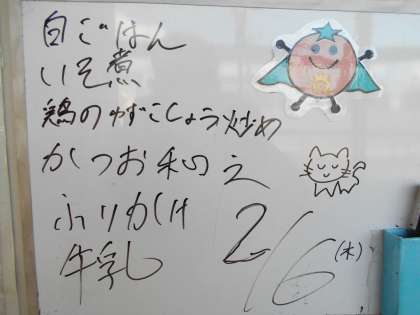 白ごはん
いそ煮
鶏のゆずこしょう炒め
かつお和え
ふりかけ
牛乳
2/6(木)